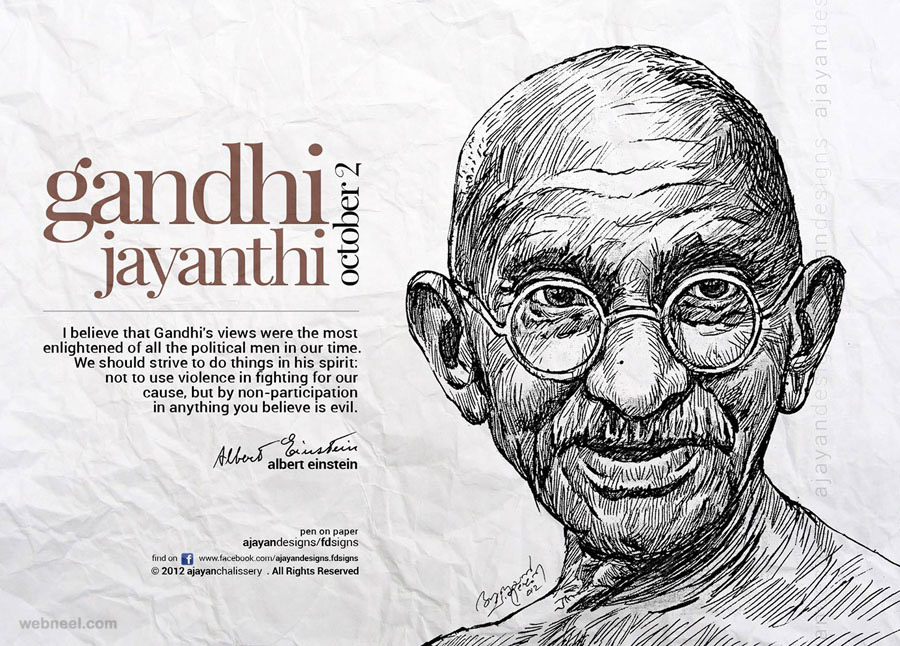 gandhi
jayanthi
october 2
I believe that Gandhi's views were the most
enlightened of all the political men in our time.
We should strive to do things in his spirit:
not to use violence in fighting for our
cause, but by non-participation
in anything you believe is evil.
Albert Einstein
albert einstein
pen on paper
ajayandesigns/fdsigns
find on f www.facebook.com/ajayandesigns.fdsigns
© 2012 ajayanchalissery . All Rights Reserved
webneel.com
ajayandesigns ajayandes